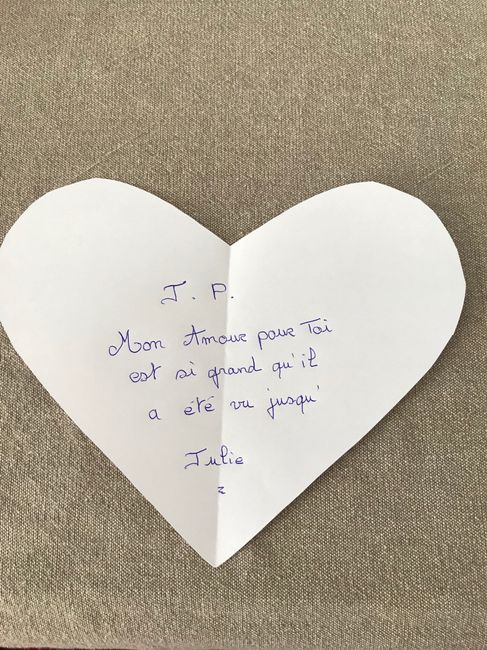 J. P.
Mon Amour pour Toi
est si grand qu'il
a été vu jusqu'
Julie